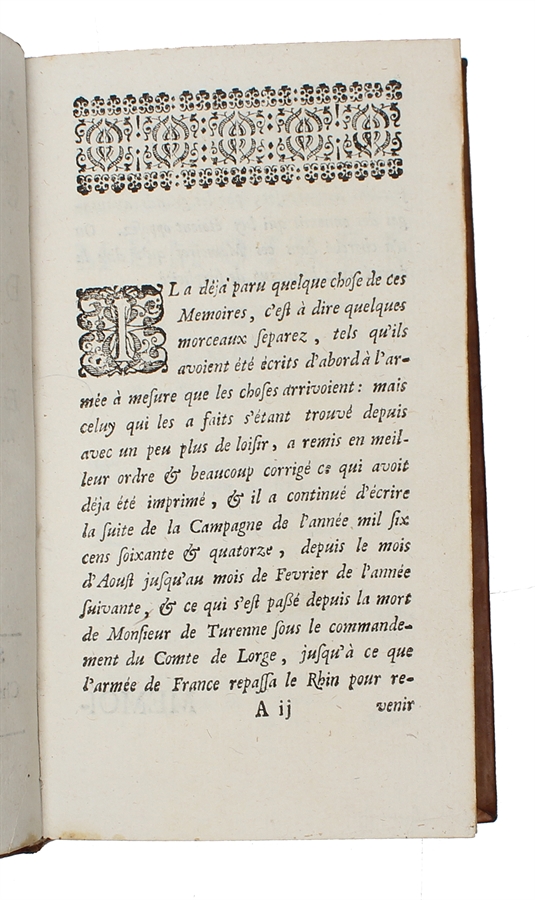 IL a déja paru quelque chose de ces
Memoires, c'eſt à dire quelques
morceaux ſeparez, tels qu'ils
avoient été écrits d'abord à l'ar-
mée à meſure que les choſes arrivoient: mais
celuy qui les a faits s'étant trouvé depuis
avec un peu plus de loiſir, a remis en meil-
leur ordre & beaucoup corrigé ce qui avoit
déja été imprimé, & il a continué d'écrire
la ſuite de la Campagne de l'année mil ſix
cens ſoixante & quatorze, depuis le mois
d'Aouſt juſqu'au mois de Fevrier de l'année
ſuivante, & ce qui s'eſt paßé depuis la mort
de Monſieur de Turenne ſous le commande-
ment du Comte de Lorge, juſqu'à ce que
l'armée de France repaſſa le Rhin pour re-
A ij venir